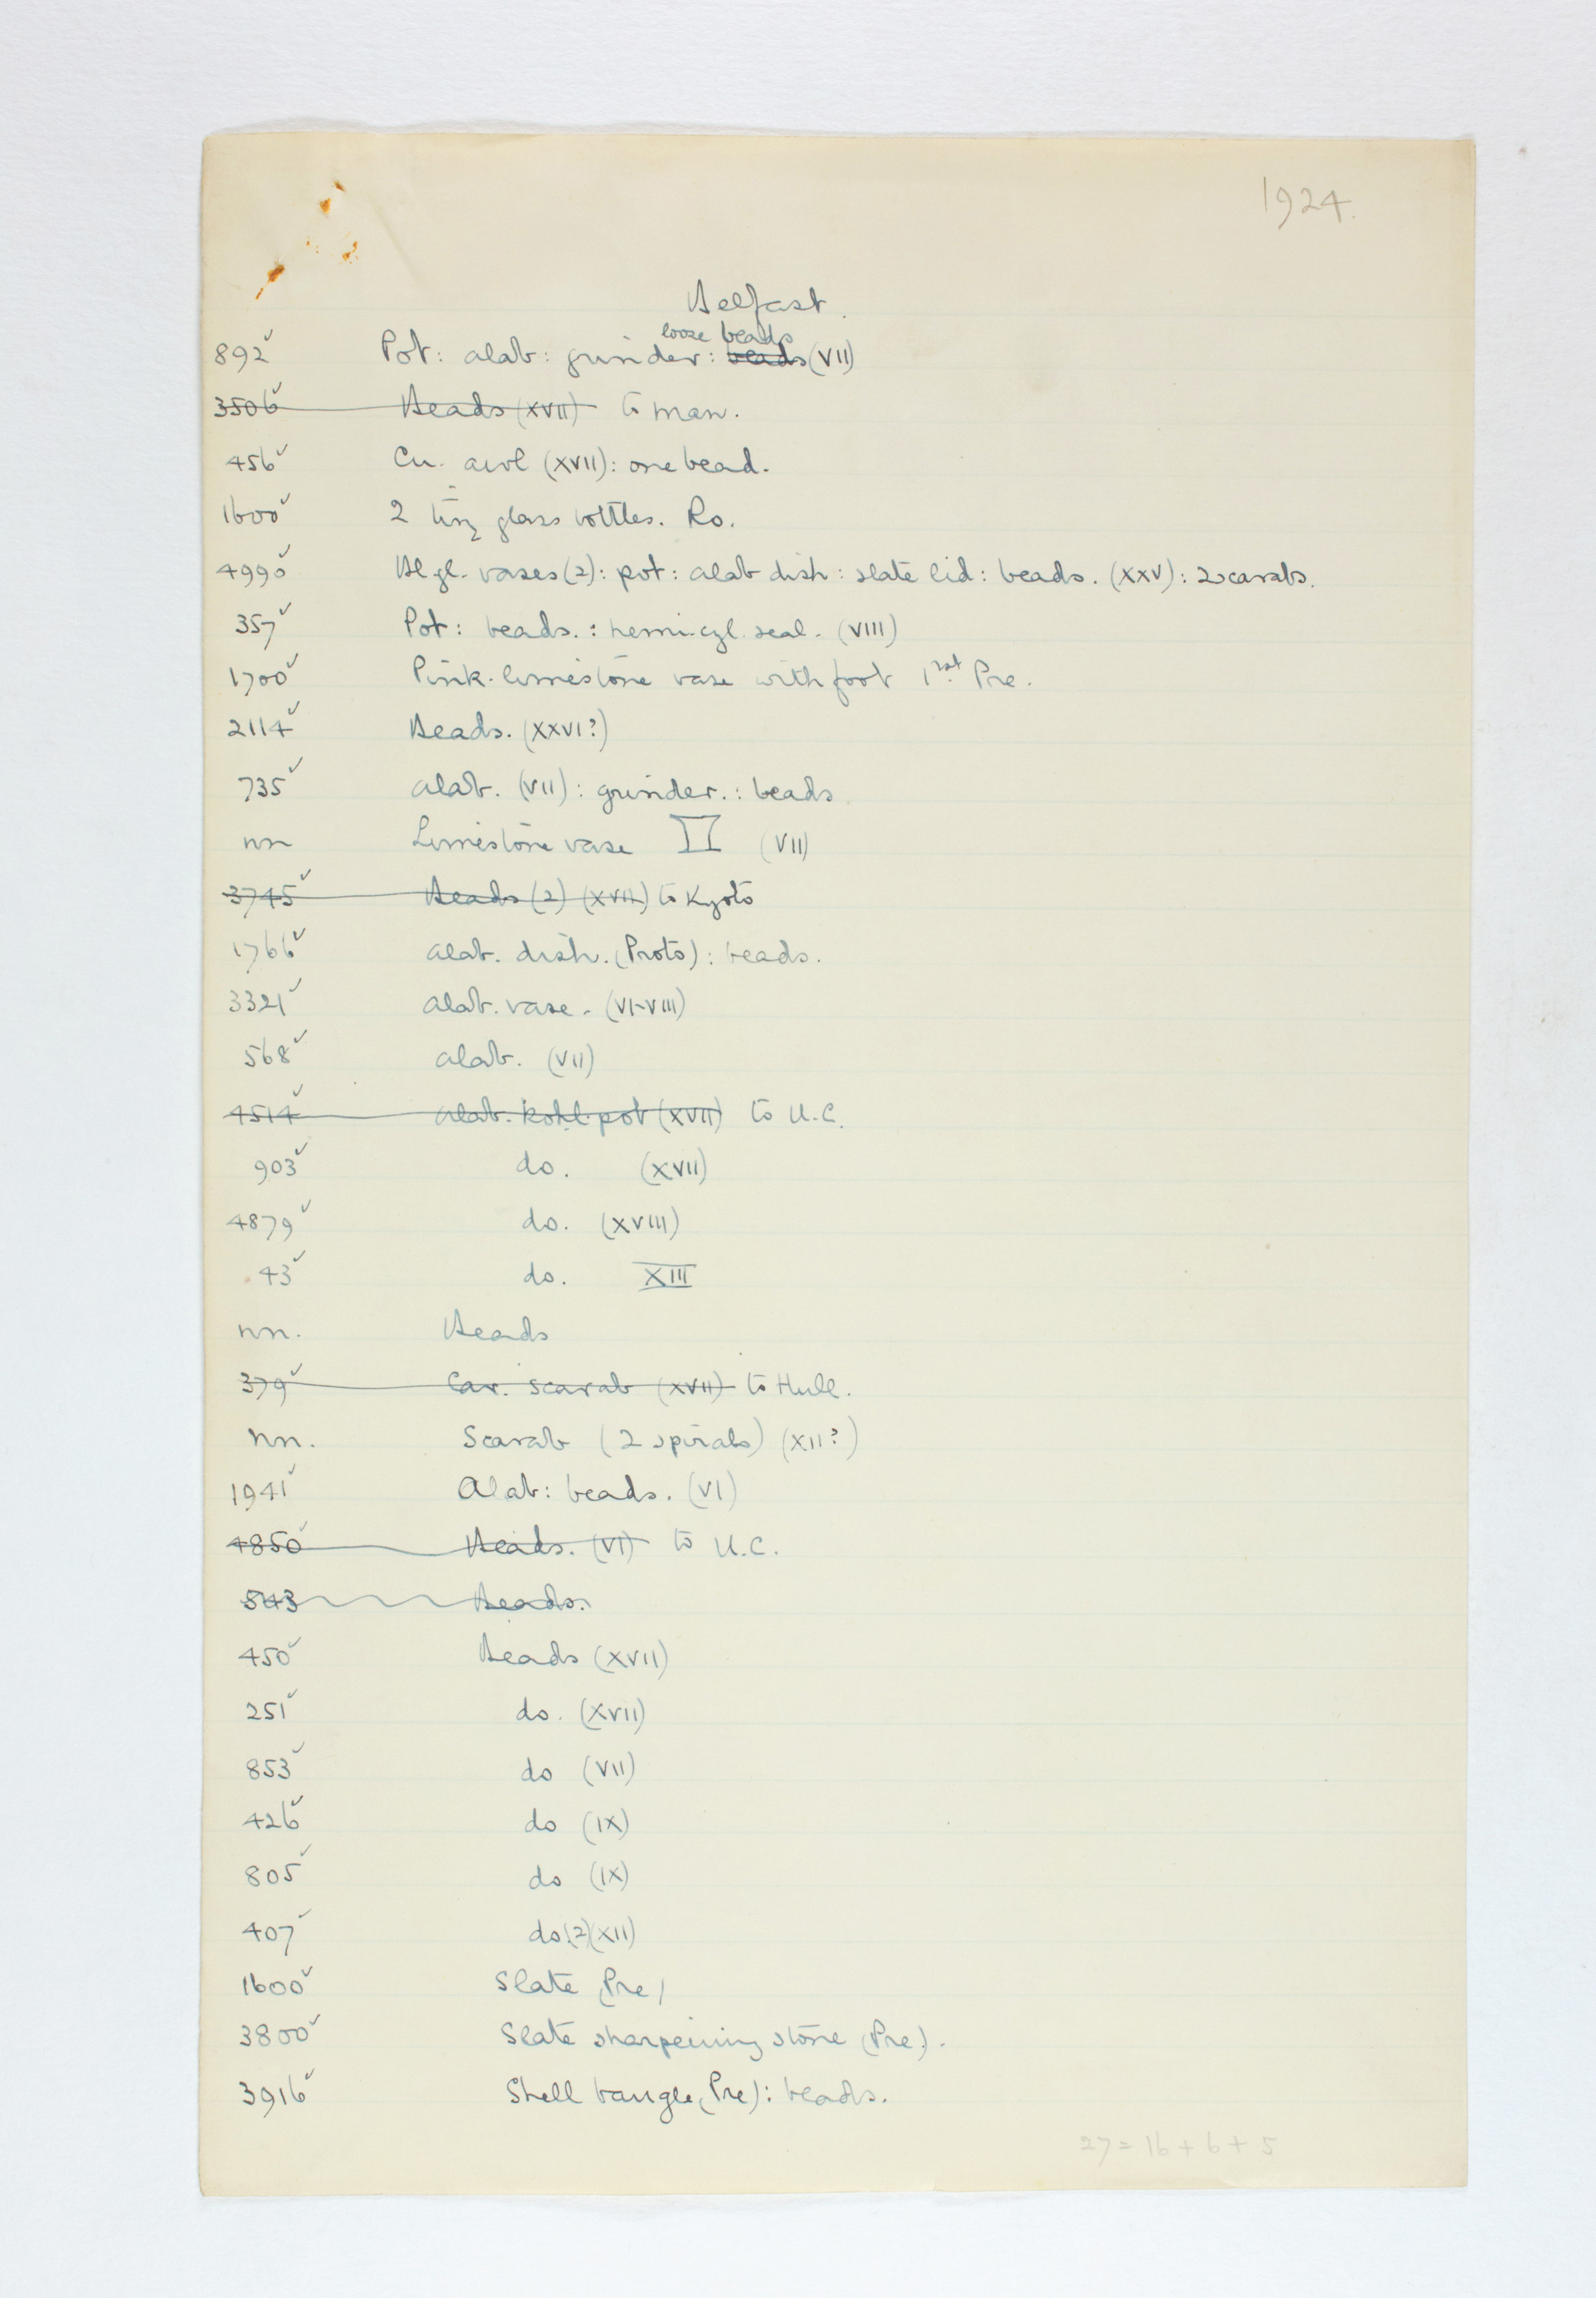 1924.
Belfast.
loose beads
892 ✓ Pot: alab: grinder: beads (VII)
3506 ✓ Beads (XVII) to Man.
456 ✓ Cu. awl (XVII): one bead.
1600 ✓ 2 tiny glass bottles. Ro.
4990 ✓ Bl. gl. vases (2): pot: alab dish: slate lid: beads. (XXV): 2 scarabs.
357 ✓ Pot: beads.: hemi-cyl. seal. (VIII)
1700 ✓ Pink limestone vase with foot 1st Pre.
2114 ✓ Beads. (XXVI?)
735 ✓ Alab. (VII): grinder.: beads
nn Limestone vase (VII)
3745 ✓ Beads (2) (XVII) to Kyoto
1766 ✓ Alab. dish. (Proto): beads.
3321 ✓ Alab. vase. (VI-VIII)
568 ✓ Alab. (VII)
4514 ✓ Alab. kohl-pot (XVII) to U.C.
903 ✓ do. (XVII)
4879 ✓ do. (XVIII)
43 ✓ do. XIII
nn. Beads
379 ✓ Car. scarab (XVII) to Hull.
nn. Scarab (2 spirals) (XII?)
1941 ✓ Alab: beads. (VI)
4850 ✓ Beads. (VI) to U.C.
543 Beads.
450 ✓ Beads (XVII)
251 ✓ do. (XVII)
853 ✓ do (VII)
426 ✓ do (IX)
805 ✓ do (IX)
407 ✓ do (2) (XII)
1600 ✓ Slate (Pre)
3800 ✓ Slate sharpening stone (Pre).
3916 ✓ Shell bangle (Pre): beads.
27 = 16 + 6 + 5